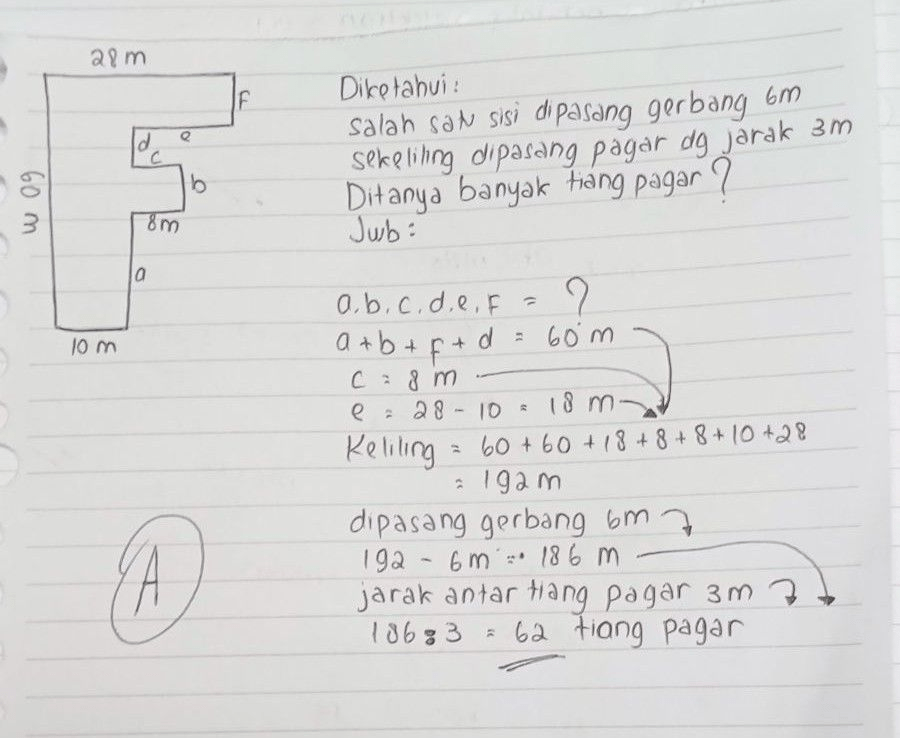 28 m
F
d
e
c
b
60 m
8m
a
10 m
Diketahui :
salah satu sisi dipasang gerbang 6m
sekeliling dipasang pagar dg jarak 3m
Ditanya banyak tiang pagar ?
Jwb :
a.b.c.d.e.F = ?
a + b + F + d = 60 m
c = 8 m
e = 28 - 10 = 18 m
Keliling = 60 + 60 + 18 + 8 + 8 + 10 + 28
= 192 m
dipasang gerbang 6m
192 - 6m = 186 m
jarak antar tiang pagar 3m
186 : 3 = 62 tiang pagar
A